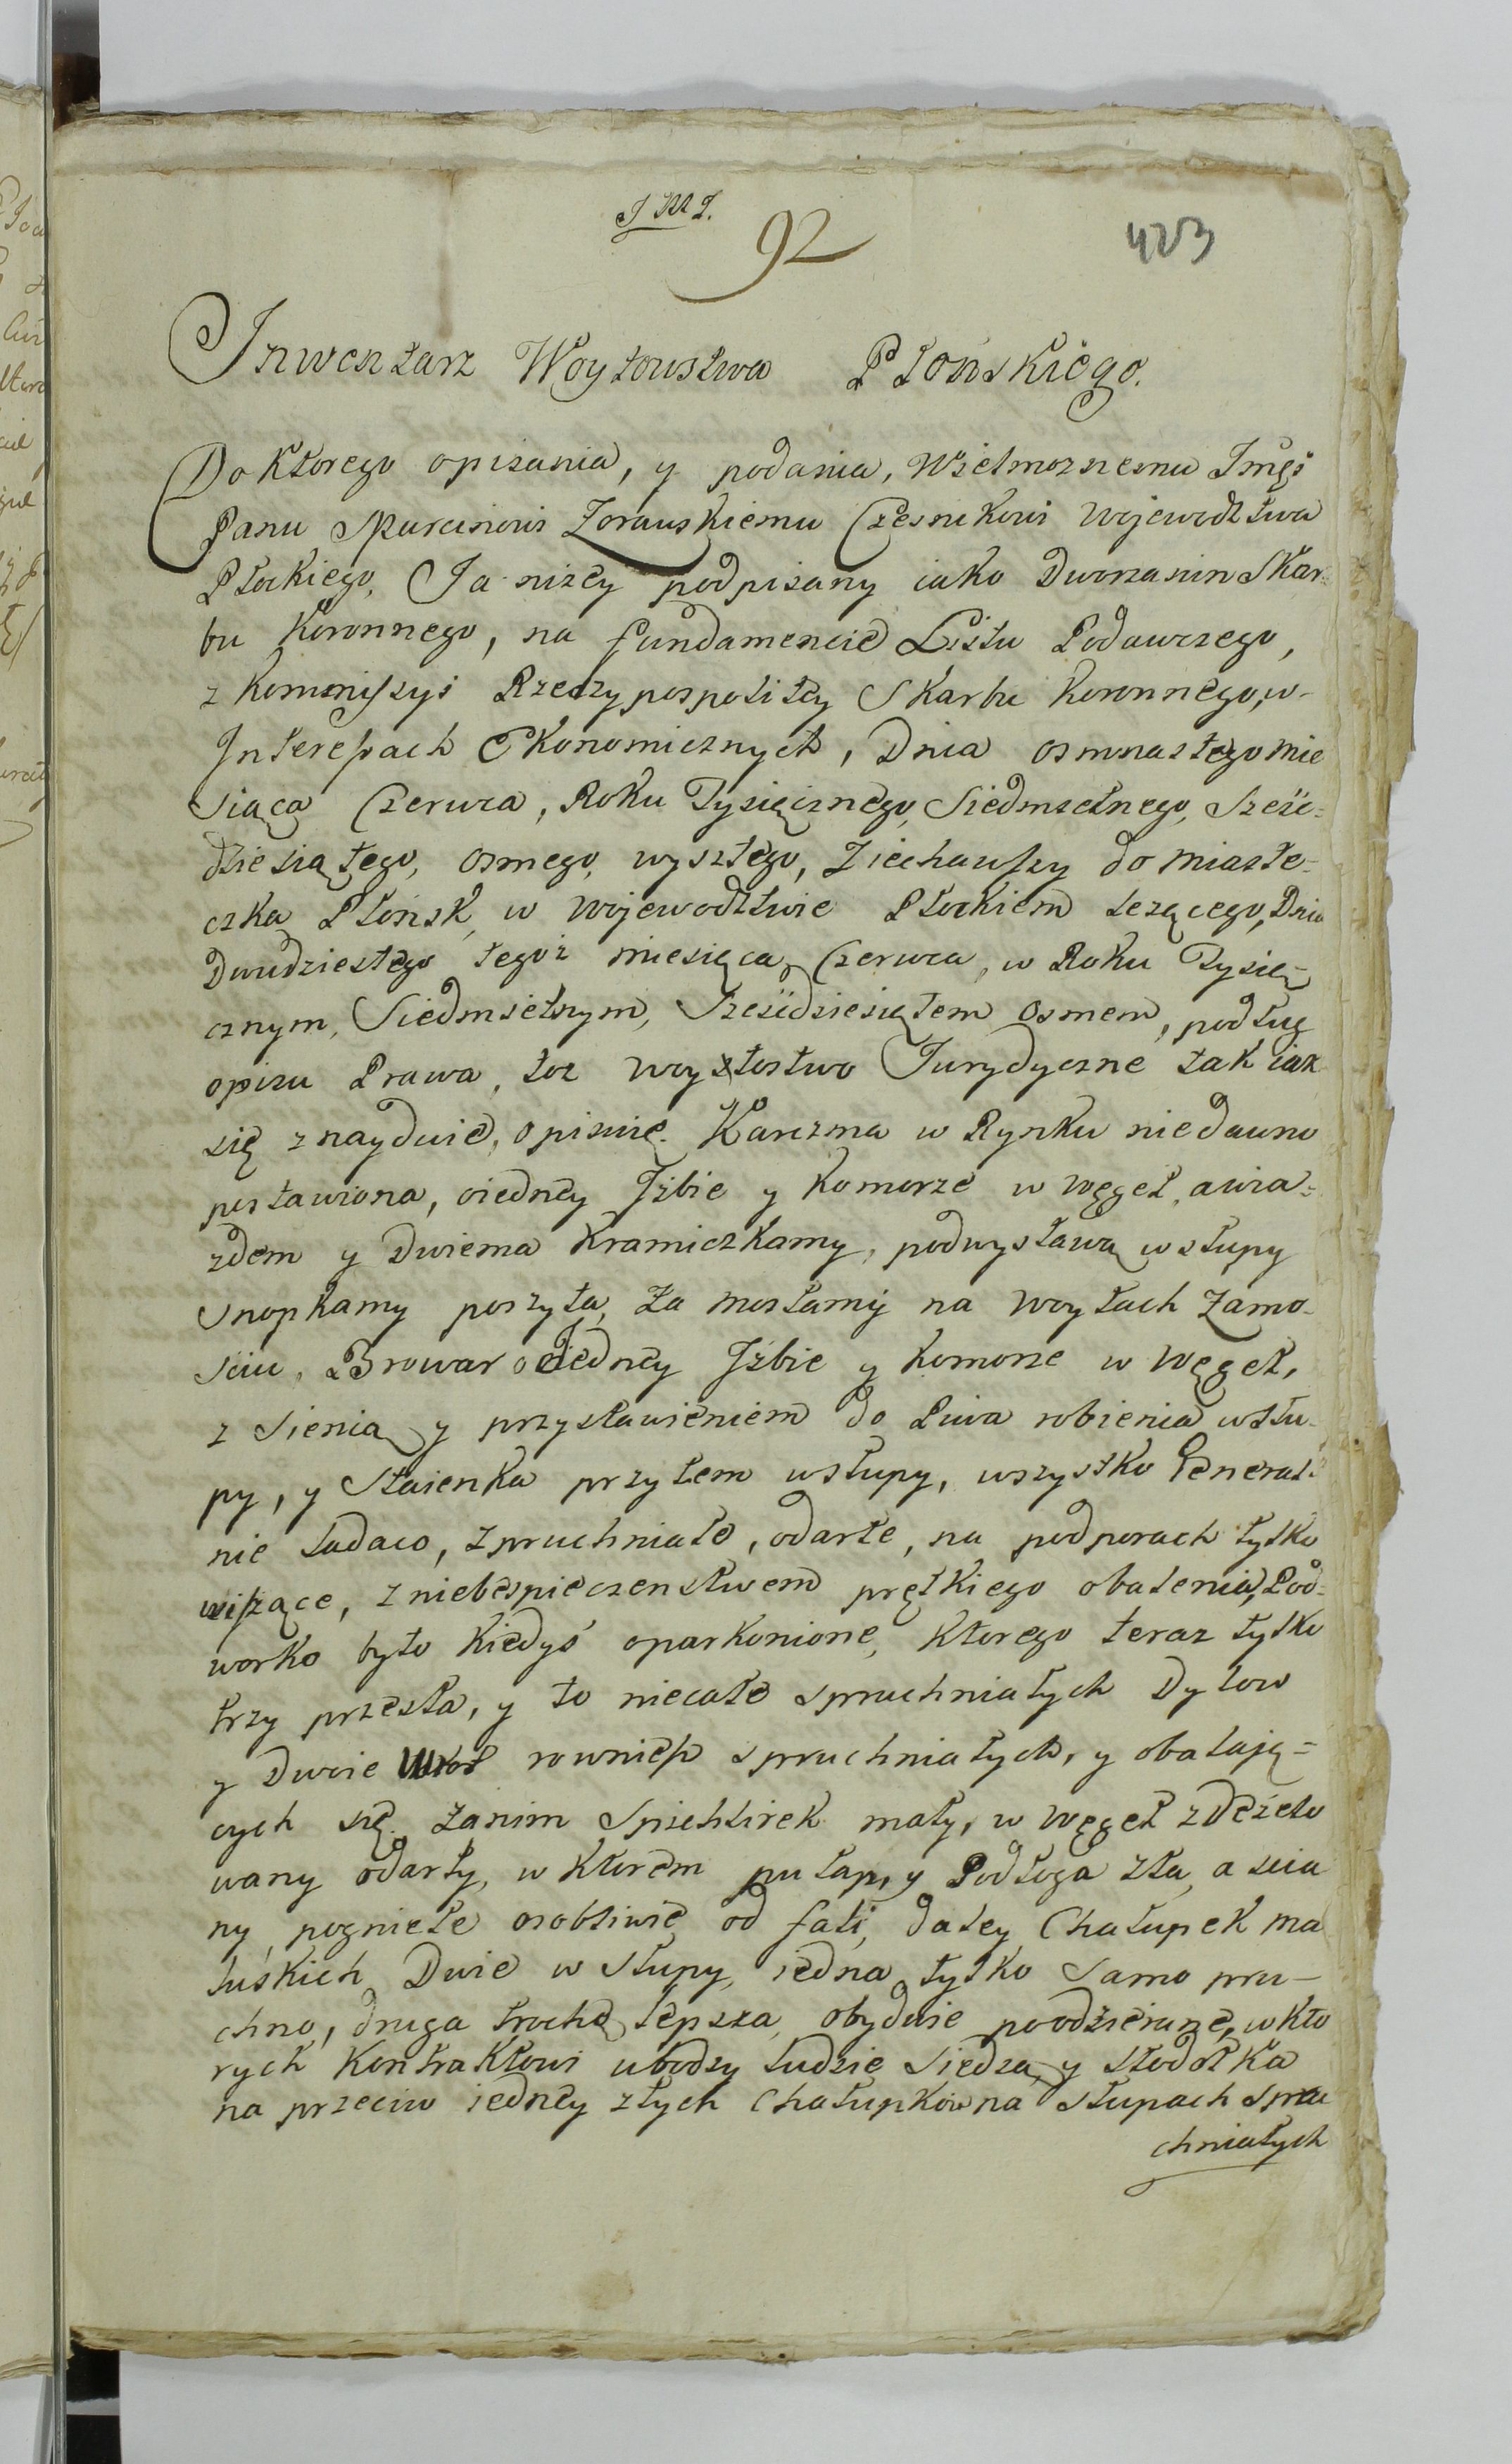 J M J.
92
423
Inwentarz Woytowstwa Płońskiego.
Do ktorego opisania, y podania, Wielmoznemu Jmci
Panu Marcinowi Zorawskiemu Czesnikowi Wojewodztwa
Płockiego, Ja nizey podpisany iako Dworzanin Skar=
bu Koronnego, na fundamencie Listu Podawczego,
z Kommissyi Rzeczypospolitey Skarbu Koronnego, w
Interessach Ekonomicznych, Dnia osmnastego mie
siąca Czerwca, Roku Tysiącznego, Siedmsetnego, Sześć=
dziesiątego, osmego, wyszłego, Ziechawszy do miaste=
czka Płońsk, w Wojewodztwie Płockiem lezącego, Dnia
Dwudziestego tegoż miesiąca Czerwca, w Roku Tysią=
cznym, Siedmsetnym, Sześćdziesiątem osmem, podług
opisu Prawa, toz Woytostwo Jurydyczne tak iak
się znayduie, opisuię. Karczma w Rynku niedawno
postawiona, oiedney Izbie y Komorze w węgeł, awia=
zdem y Dwiema Kramiczkamy, podwystawą wsłupy
snopkamy poszyta, za mostamy na Woytach Zamo=
sciu, Browar o Jedney Izbie y Komorze w Węgeł,
z Sienią y przystawieniem do Piwa robienia wsłu=
py, y Staienka przytem wsłupy, wszystko General=
nie ladaco, zpruchniałe, odarte, na podporach tylko
wiszące, z niebespieczenstwem prętkiego obalenia, Pod=
worko było kiedyś oparkonione, ktorego teraz tylko
trzy przesła, y to niecałe spruchniałych Dylow
y Dwoie Wrot rownież spruchniałych, y obalają=
cych się. Zanim Spichlirek mały, w Węgeł zdezelo
wany odarty, w ktorem pułap, y Podłoga zła, a scia
ny pogniełe osobliwie od fali, daley Chałupek ma
luśkich Dwie w Słupy, iedna tylko samo pru=
chno, druga trochę lepsza, obydwie poodzierane, w kto
rych Kontraktowi ubodzy ludzie siedzą, y stodołka
na przeciw iedney złych Chałupkow na Słupach spru
chniałych